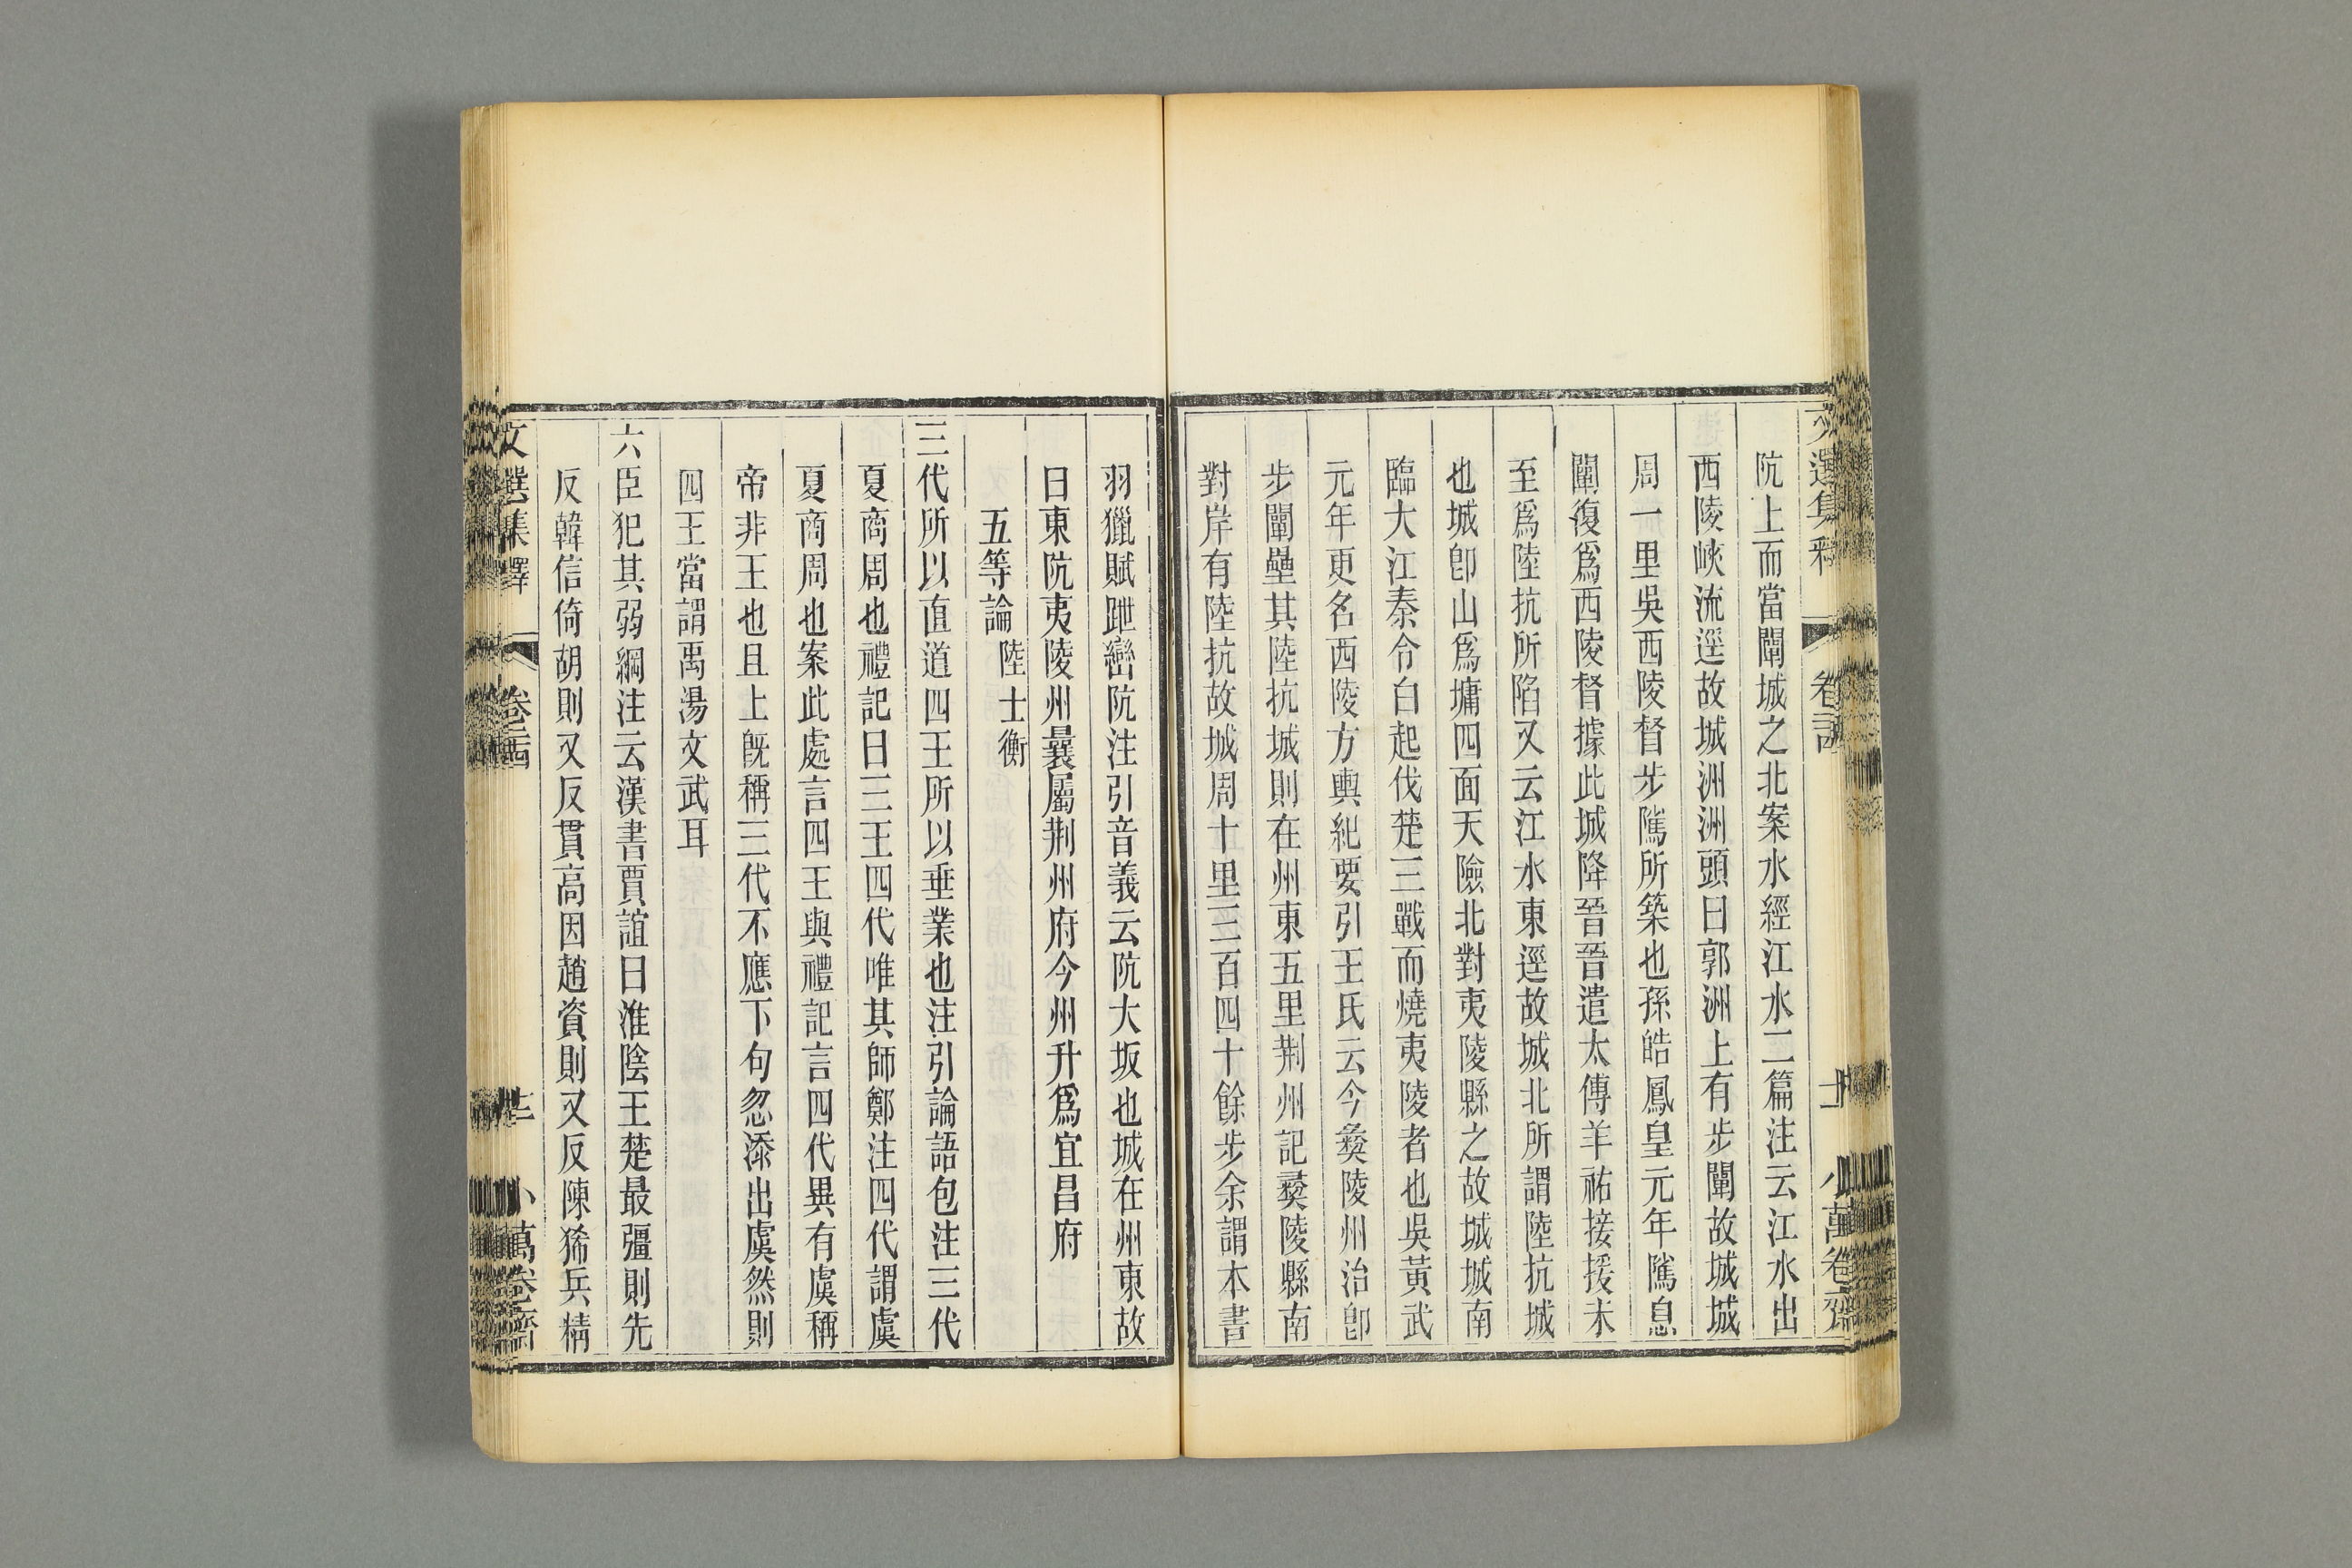 阬上而當闉城之北案水經江水二篇注云江水出
西陵峽流逕故城洲洲頭曰郭洲上有步闡故城城
周一里吳西陵督步隲所築也孫皓鳳皇元年隲息
闡復爲西陵督據此城降晉晉遣太傅羊祜接援未
至爲陸抗所陷又云江水東逕故城北所謂陸抗城
也城卽山爲墉四面天險北對夷陵縣之故城城南
臨大江秦令白起伐楚三戰而燒夷陵者也吳黃武
元年更名西陵方輿紀要引王氏云今彝陵州治卽
步闡壘其陸抗城則在州東五里荆州記彝陵縣南
對岸有陸抗故城周十里三百四十餘步余謂本書
羽獵賦跇巒阬注引音義云阬大坂也城在州東故
曰東阬夷陵州曩屬荆州府今州升爲宜昌府
五等論 陸士衡
三代所以直道四王所以垂業也注引論語包注三代
夏商周也禮記曰三王四代唯其師鄭注四代謂虞
夏商周也案此處言四王與禮記言四代異有虞稱
帝非王也且上旣稱三代不應下句忽添出虞然則
四王當謂禹湯文武耳
六臣犯其弱綱注云漢書賈誼曰淮陰王楚最彊則先
反韓信倚胡則又反貫高因趙資則又反陳豨兵精
文選集釋 卷二十四 小萬卷齋